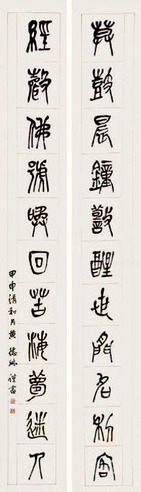 莫鼓晨鐘敲醒世間名利客
經聲佛號喚回苦海夢迷人
甲申清和月黃德書